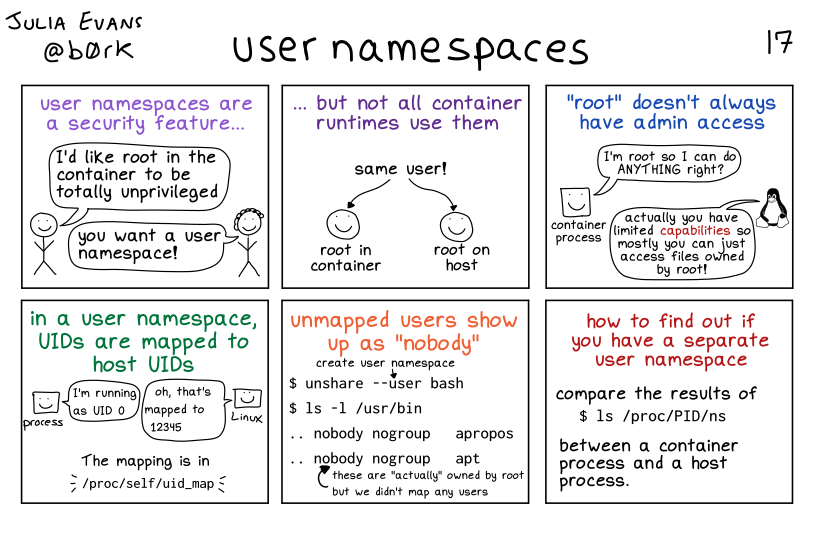 JULIA EVANS
@b0rk
user namespaces
17
user namespaces are
a security feature...
I'd like root in the
container to be
totally unprivileged
you want a user
namespace!
... but not all container
runtimes use them
same user!
root in
container
root on
host
"root" doesn't always
have admin access
I'm root so I can do
ANYTHING right?
container
process
actually you have
limited capabilities so
mostly you can just
access files owned
by root!
in a user namespace,
UIDs are mapped to
host UIDs
I'm running
as UID 0
process
oh, that's
mapped to
12345
Linux
The mapping is in
/proc/self/uid_map
unmapped users show
up as "nobody"
create user namespace
$ unshare --user bash
$ ls -l /usr/bin
.. nobody nogroup apropos
.. nobody nogroup apt
these are "actually" owned by root
but we didn't map any users
how to find out if
you have a separate
user namespace
compare the results of
$ ls /proc/PID/ns
between a container
process and a host
process.